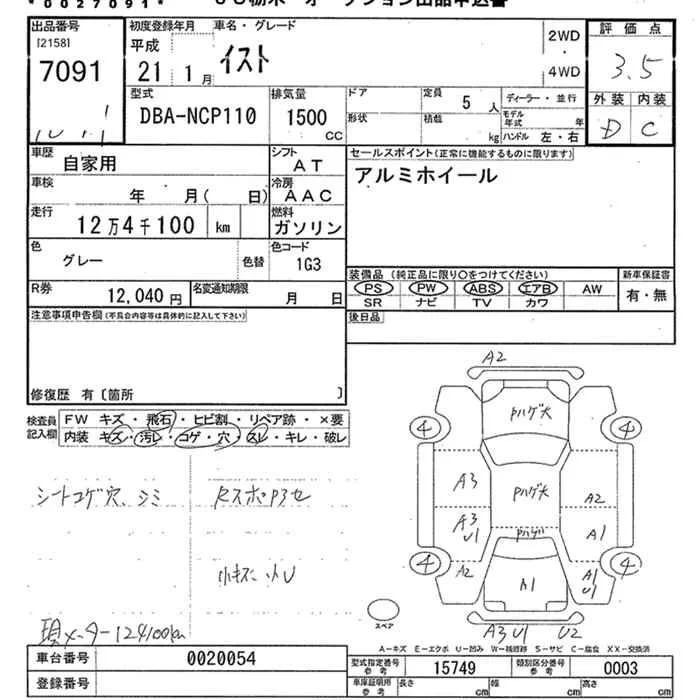 *0027091*
出品番号 [2158] 7091
初度登録年月 平成 21年 1月
車名・グレード イスト
2WD・4WD
評価点 3.5
外装 D 内装 C
型式 DBA-NCP110
排気量 1500 CC
ドア 形状
定員 5 人
積載 kg
ディーラー・並行
モデル年式 年
ハンドル 左・右
車歴 自家用
シフト AT
セールスポイント(正常に機能するものに限ります)
アルミホイール
車検 年 月( 日)
冷房 AAC
走行 12万4千100 km
燃料 ガソリン
色 グレー 色替
色コード 1G3
装備品 (純正品に限り○をつけてください)
PS PW ABS エアB AW
SR ナビ TV カワ
新車保証書 有・無
R券 12,040 円
名変通知期限 月 日
後日品
注意事項申告欄 (不具合内容等は具体的に記入して下さい)
修復歴 有〔箇所 〕
検査員記入欄
FW キズ・飛石・ヒビ割・リペア跡・×要
内装・キズ・汚レ・コゲ・穴・スレ・キレ・破レ
シートコゲ穴、シミ
RスポPハセ
小キズ 小U
現メーター124100km
A2
Pハゲ大
4 4
A3 Pハゲ大 A2
A3 U1 Pハゲ A1
4 4
A2 A1 A1 U1
A3 U1 U2
スペア
A-キズ E-エクボ U-凹み W-補修跡 S-サビ C-腐食 XX-交換済
車台番号 0020054
登録番号
型式指定番号 参考 15749
類別区分番号 参考 0003
車庫証明用 参考 長さ cm 幅 cm 高さ cm